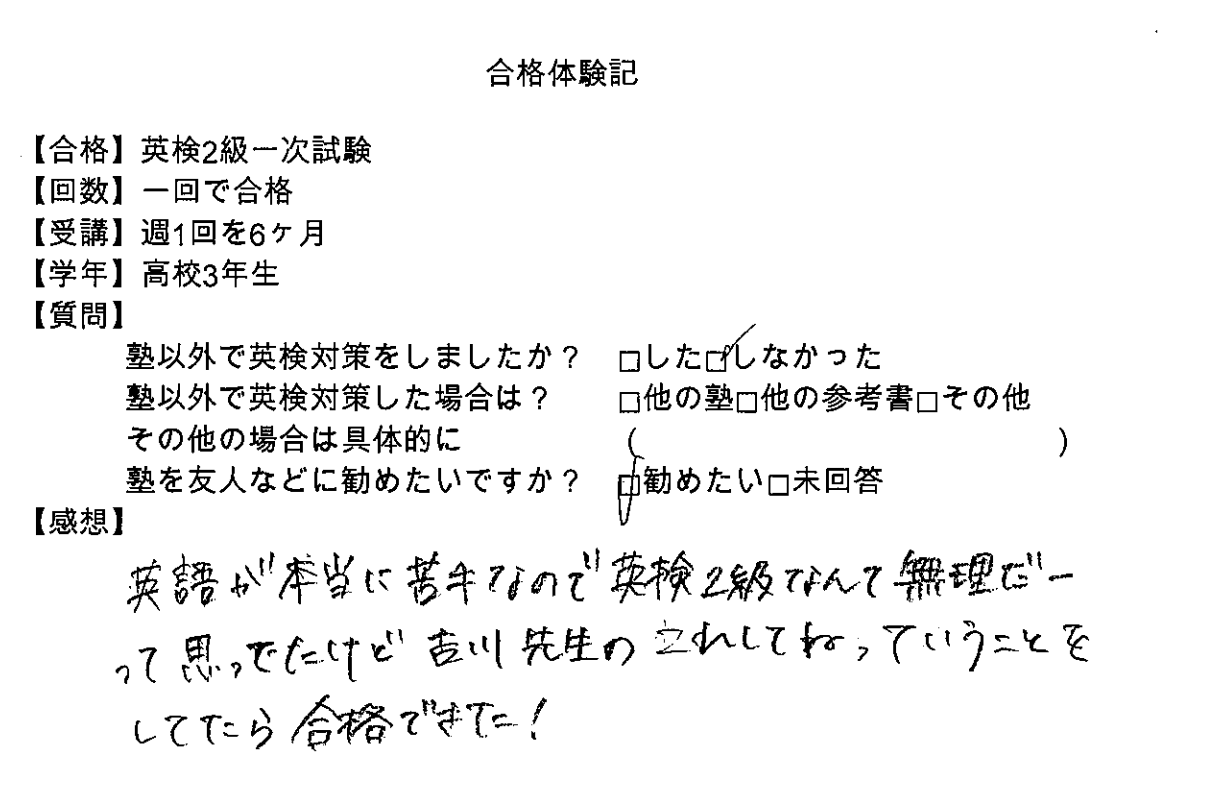 合格体験記
【合格】英検2級一次試験
【回数】一回で合格
【受講】週1回を6ヶ月
【学年】高校3年生
【質問】
塾以外で英検対策をしましたか？ □した☑しなかった
塾以外で英検対策した場合は？ □他の塾□他の参考書□その他
その他の場合は具体的に ( )
塾を友人などに勧めたいですか？ ☑勧めたい□未回答
【感想】
英語が本当に苦手なので英検2級なんて無理だー
って思ってたけど吉川先生のこれしてね、っていうことを
してたら合格できた！